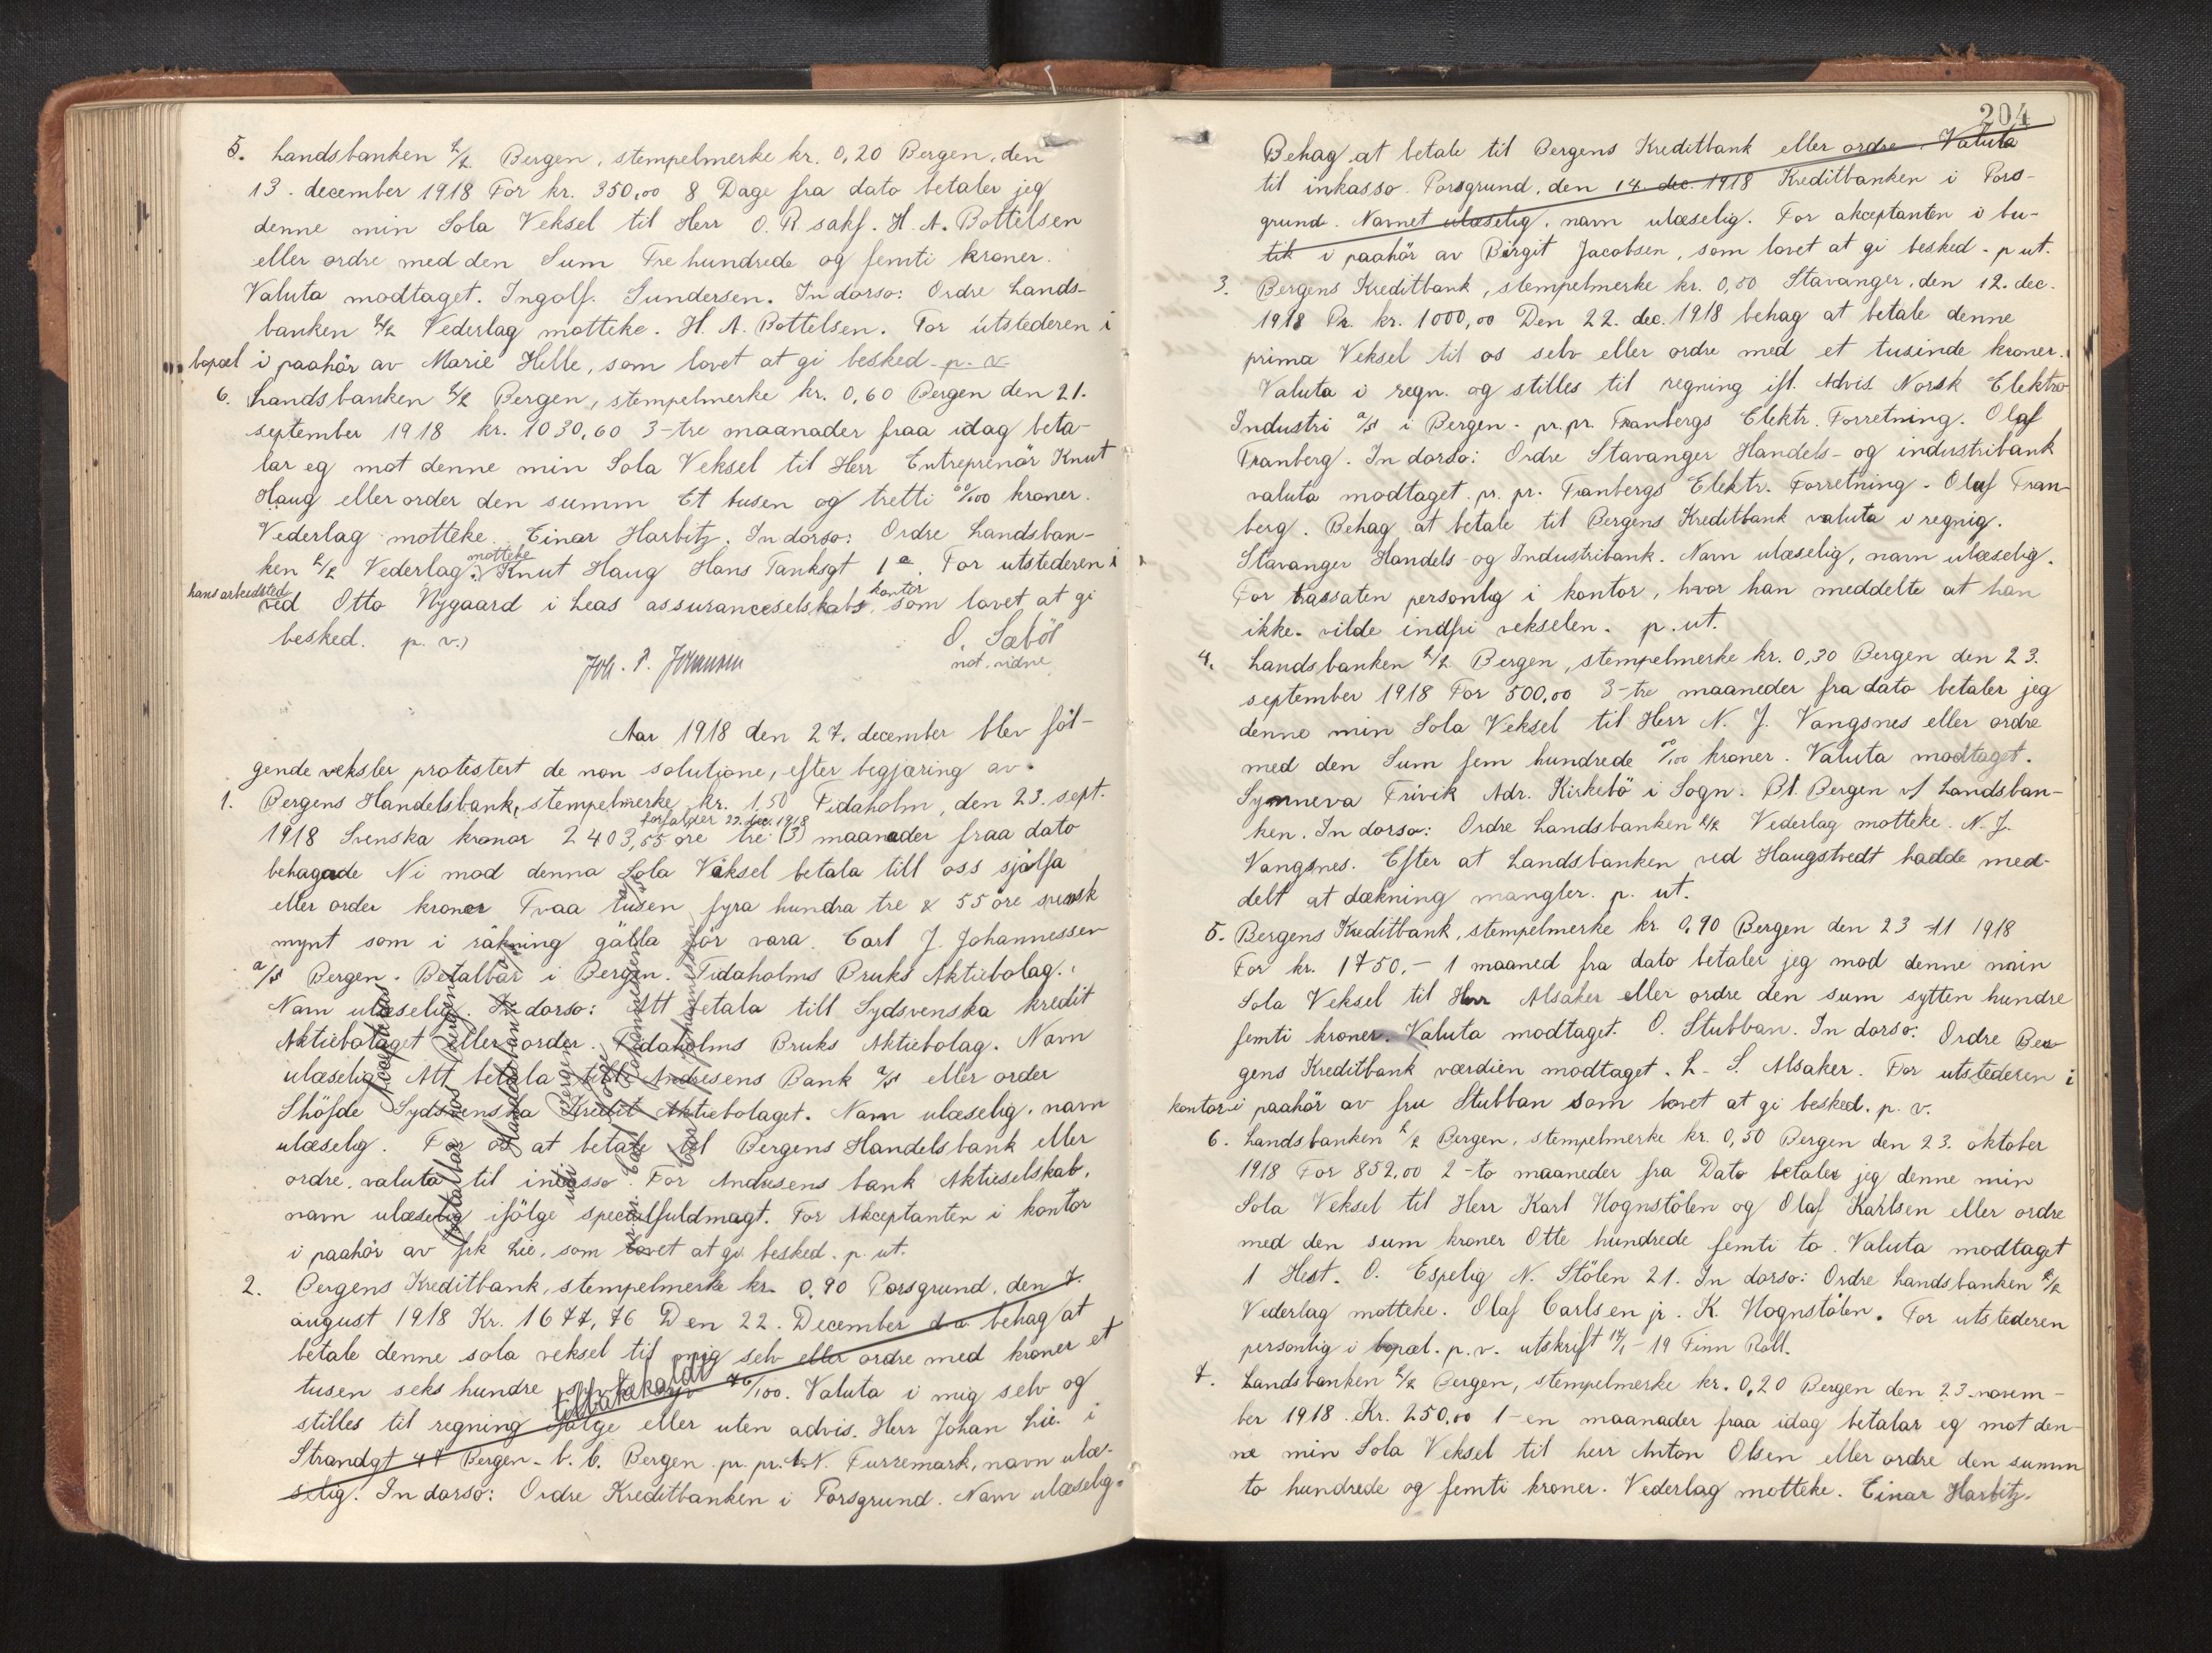 5. Landsbanken L/L Bergen, stempelmerke kr. 0,20 Bergen, den
13. december 1918 For kr. 350,00 8 Dage fra dato betaler jeg
denne min Sola Veksel til Herr O. R sakf. H. A. Bottelsen
eller ordre med den Sum Tre hundrede og femti kroner.
Valuta modtaget. Ingolf. Gundersen. In dorso: Ordre Lands-
banken L/L Vederlag motteke. H. A. Bottelsen. For utstederen i
bopæl i paahör av Marie Helle, som lovet at gi besked - p. v.
6. Landsbanken L/L Bergen, stempelmerke kr. 0,60 Bergen den 21.
september 1918 kr. 1030,60 3-tre maanader fraa idag beta-
lar eg mot denne min Sola Veksel til Herr Entreprenör Knut
Haug eller order den summ Et tusen og tretti 60/100 kroner.
Vederlag motteke. Einar Harbitz. In dorso: Ordre Landsban-
ken L/L Vederlag motteke. Knut Haug Hans Tanksgt 1 a. For utstederen i
hans arbeidsted ved Otto Nygaard i Leas assuranceselskabs kontor, som lovet at gi
besked. p. v.)
Joh. P. Johansen
O. Sæböl
not. vidne
Aar 1918 den 27. december blev föl-
gende veksler protestert de non solutione, efter begjæring av.
1. Bergens Handelsbank, stempelmerke kr. 1,50 Tidaholm, den 23. sept.
forfalder 22. dec. 1918
1918 Svenska kronor 2403,55 öre tre (3) maanader fraa dato
behagade Ni mod denna Sola Väksel betala till oss sjålfa
eller order kroner Tvaa tusen fyra hundra tre & 55 öre svensk
mynt som i räkning gälla för vara. Carl J. Johannessen
a/s Bergen. Betalbar i Bergen. Tidaholms Bruks Aktiebolag.
Navn ulæselig. In dorso: Att betala till Sydsvenska kredit
Aktiebolaget eller order. Tidaholms Bruks Aktiebolag. Navn
ulæselig Att betala till Andresens Bank a/s eller order
Shöfde Sydsvenska Kredit Aktiebolaget. Navn ulæselig. navn
ulæselig. For os at betale til Bergens Handelsbank eller
ordre. valuta til incasso. For Andresens bank Aktieselskab.
navn ulæselig ifölge specialfuldmagt. For Akceptanten i kontor
i paahör av frk Lie, som lovet at gi besked. p. ut.
Accepteras
betalbar hos Bergens
Handelsbank a/s
Bergen
2. Bergens Kreditbank, stempelmerke kr. 0,90 Porsgrund, den 7.
august 1918 Kr. 1677,76 Den 22. December d.a. behag at
betale denne sola veksel til mig selv eller ordre med kroner et
tusen seks hundre sytti syv 76/100. Valuta i mig selv og
tilbakekaldt
stilles til regning ifölge eller uten advis. Herr Johan Lie i
Strandgt 47 Bergen - b. b. Bergen pr. pr. N. Furremark, navn ulæ-
selig. In dorso: Ordre Kreditbanken i Porsgrund. Navn ulæselig.
204
Behag at betale til Bergens Kreditbank eller ordre. Valuta
til inkasso. Porsgrund, den 14. dec. 1918 Kreditbanken i Pors-
grund. Navnet ulæselig, navn ulæselig. For akceptanten i bu-
tik i paahör av Birgit Jacobsen, som lovet at gi besked - p ut.
3. Bergens Kreditbank, stempelmerke kr. 0,50 Stavanger, den 12. dec.
1918 Pr. kr. 1000,00 Den 22. dec. 1918 behag at betale denne
prima Veksel til os selv eller ordre med et tusinde kroner.
Valuta i regn. og stilles til regning ifl. Advis Norsk Elektro
Industri a/s i Bergen - pr. pr. Tranbergs Elektr. Forretning. Olaf
Tranberg. In dorso: Ordre Stavanger Handels- og industribank
valuta modtaget pr. pr. Tranbergs Elektr. Forretning - Olaf Tran-
berg. Behag at betale til Bergens Kreditbank valuta i regnig.
Stavanger Handels - og Industribank. Navn ulæselig, navn ulæselig.
For trassaten personlig i kontor, hvor han meddelte at han
ikke vilde indfri vekselen. p. ut.
4. Landsbanken L/L Bergen, stempelmerke kr. 0,30 Bergen den 23.
september 1918 For 500,00 3-tre maaneder fra dato betaler jeg
denne min Sola Veksel til Herr N. J. Vangsnes eller ordre
med den Sum fem hundrede 00/100 kroner. Valuta modtaget.
Synneva Frivik Adr. Kirkebö i Sogn. Bt. Bergen v/ Landsban-
ken. In dorso: Ordre Landsbanken L/L Vederlag motteke. N. J.
Vangsnes. Efter at Landsbanken ved Haugstvedt hadde med-
delt at dækning mangler. p. ut.
5. Bergens Kreditbank, stempelmerke kr. 0,90 Bergen den 23 -11 1918
For kr. 1750.- 1 maaned fra dato betaler jeg mod denne min
Sola Veksel til Herr Alsaker eller ordre den sum sytten hundre
femti kroner. Valuta modtaget. O. Stubban. In dorso: Ordre Ber-
gens Kreditbank værdien modtaget. L. S. Alsaker. For utstederen i
kontor i paahör av fru Stubban som lovet at gi besked. p. v.
6. Landsbanken L/L Bergen, stempelmerke kr. 0,50 Bergen den 23. oktober
1918 For 852,00 2-to maaneder fra Dato betaler jeg denne min
Sola Veksel til Herr Karl Hognstölen og Olaf Karlsen eller ordre
med den sum kroner Otte hundrede femti to. Valuta modtaget
1 Hest. O. Espelig N. Stölen 21. In dorso: Ordre Landsbanken L/L
Vederlag motteke. Olaf Carlsen jr. K. Hognstölen. For utstederen
personlig i bopæl. p. v. utskrift 17/1 - 19 Finn Roll.
7. Landsbanken L/L Bergen, stempelmerke kr. 0,20 Bergen den 23. novem-
ber 1918. Kr. 250,00 1-en maanader fraa idag betalar eg mot den-
ne min Sola Veksel til herr Anton Olsen eller ordre den summ
to hundrede og femti kroner. Vederlag motteke. Einar Harbitz.